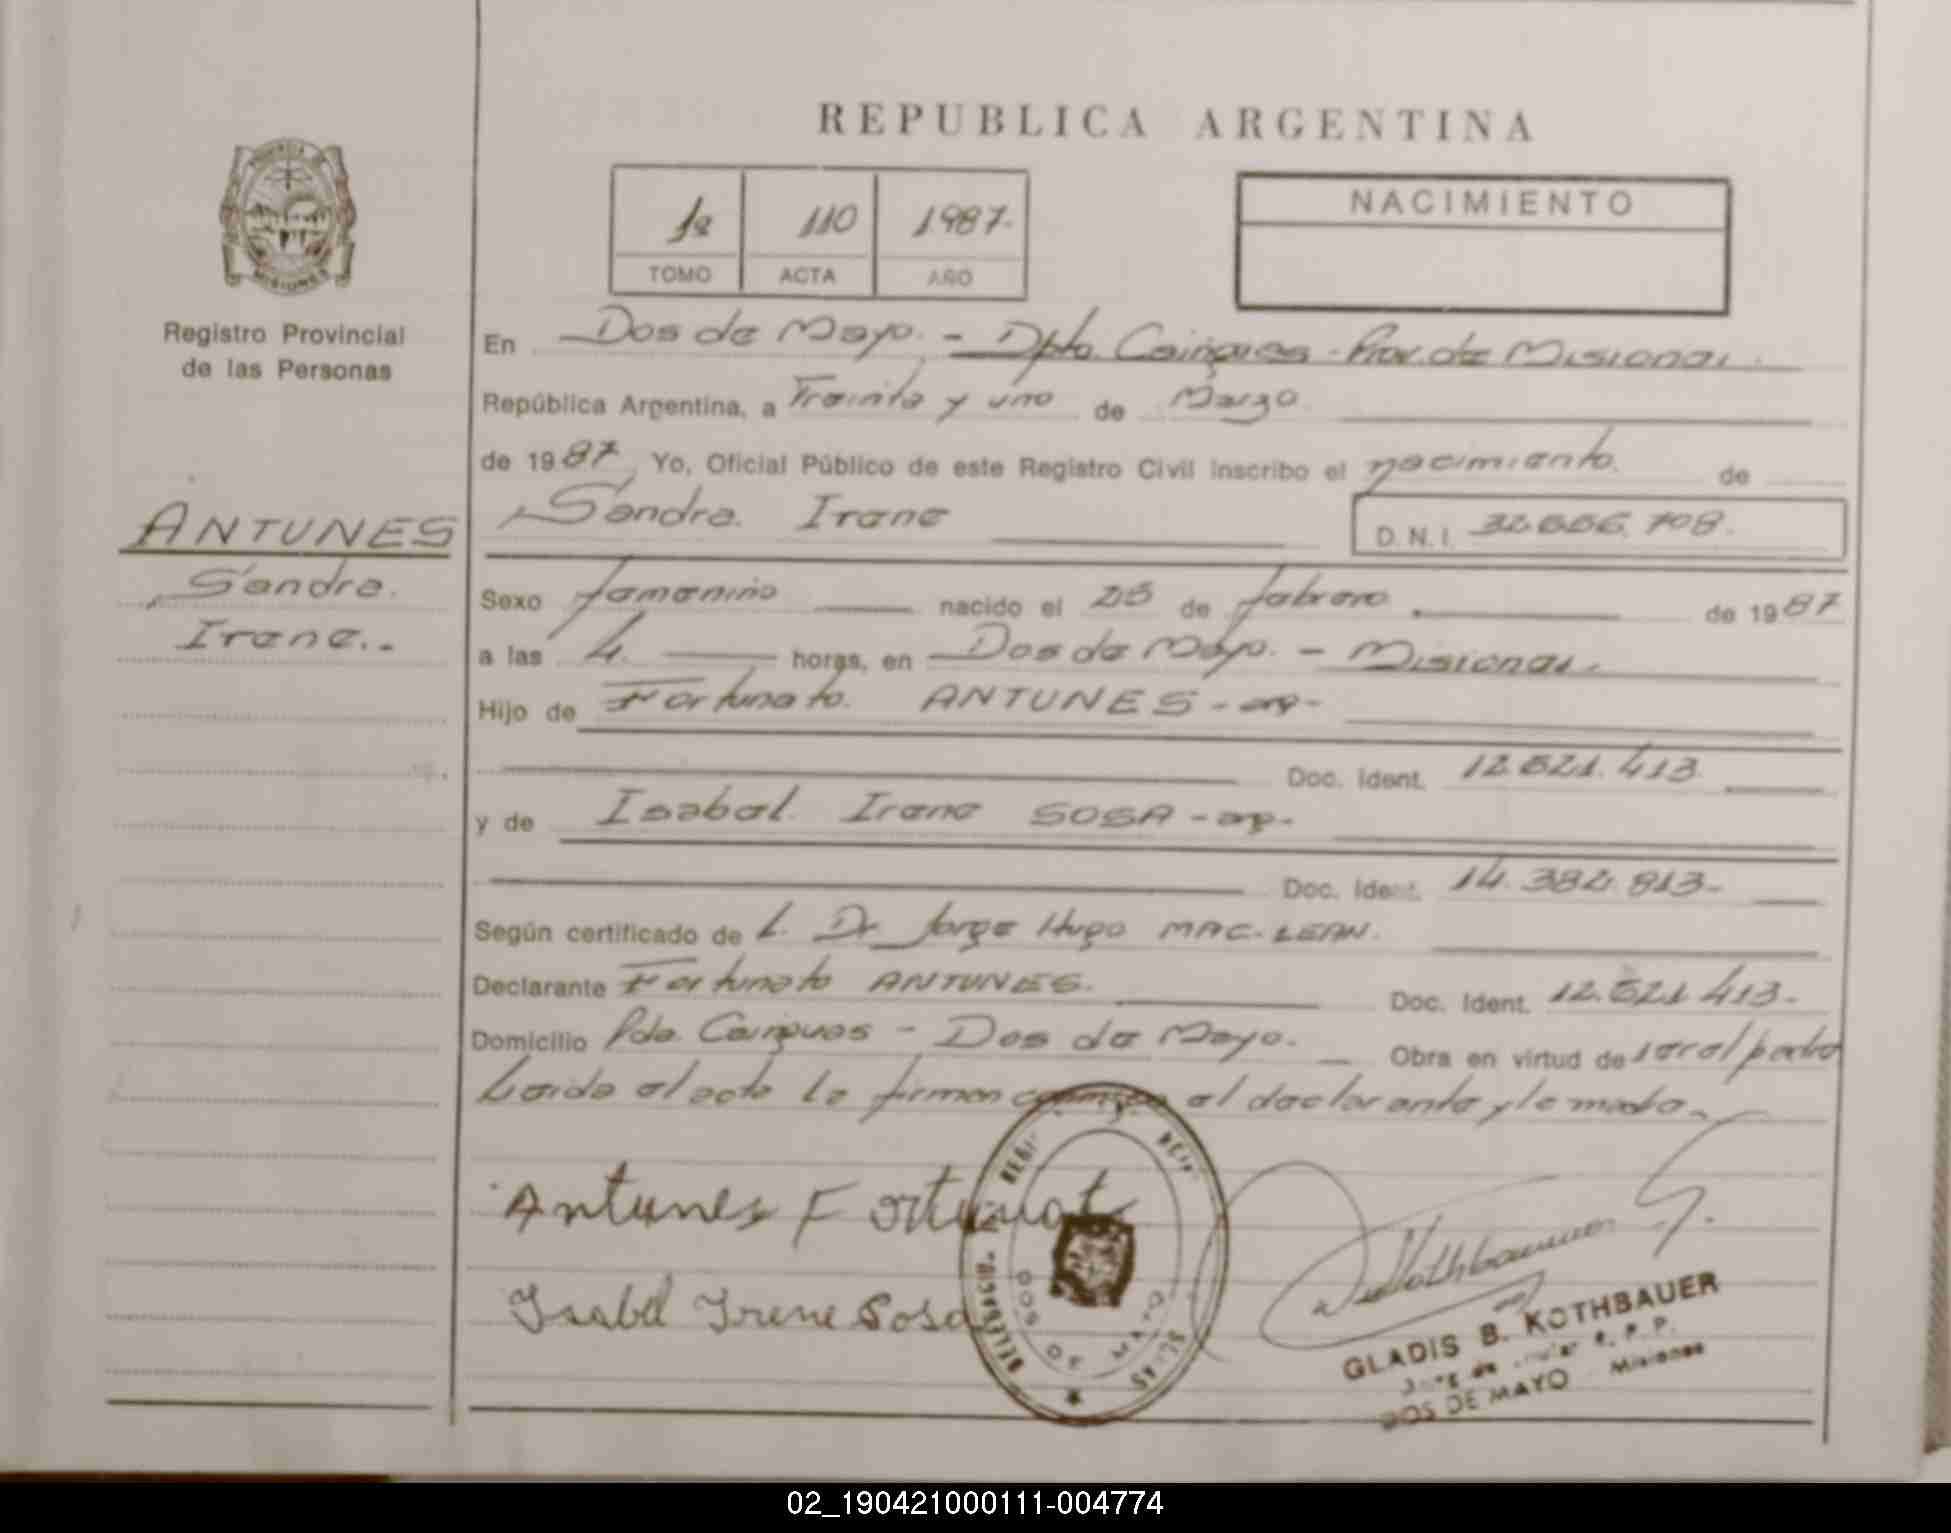 REPUBLICA ARGENTINA
1º 110 1987.
TOMO ACTA AÑO
NACIMIENTO
PROVINCIA DE
MISIONES
Registro Provincial
de las Personas
ANTUNES
Sandra.
Irene..
En Dos de Mayo. - Dpto. Cainguas - Prov. de Misiones.
República Argentina, a Treinta y uno de Marzo
de 1987 Yo, Oficial Público de este Registro Civil inscribo el nacimiento. de
Sandra. Irene
D.N.I. 708.
Sexo femenino nacido el de febrero de 1987
a las 4. horas, en Dos de Mayo. - Misiones.
Hijo de Fortunato. ANTUNES - arg -
Doc. Ident. 12.621.413.
y de Isabel. Irene SOSA - arg -
Doc. Ident. 14.384.813-
Según certificado de L. Dr. Jorge Hugo MAC-LEAN.
Declarante Fortunato ANTUNES. Doc. Ident. 12.621.413-
Domicilio Pdo. Cainguas - Dos de Mayo. - Obra en virtud de ser el padre
Leida el acta la firman el declarante y la madre
Antunes Fortunat
Isabel Irene Sosa
DOS DE MAYO
Kothbauer
GLADIS B. KOTHBAUER
DOS DE MAYO Misiones
02_190421000111-004774